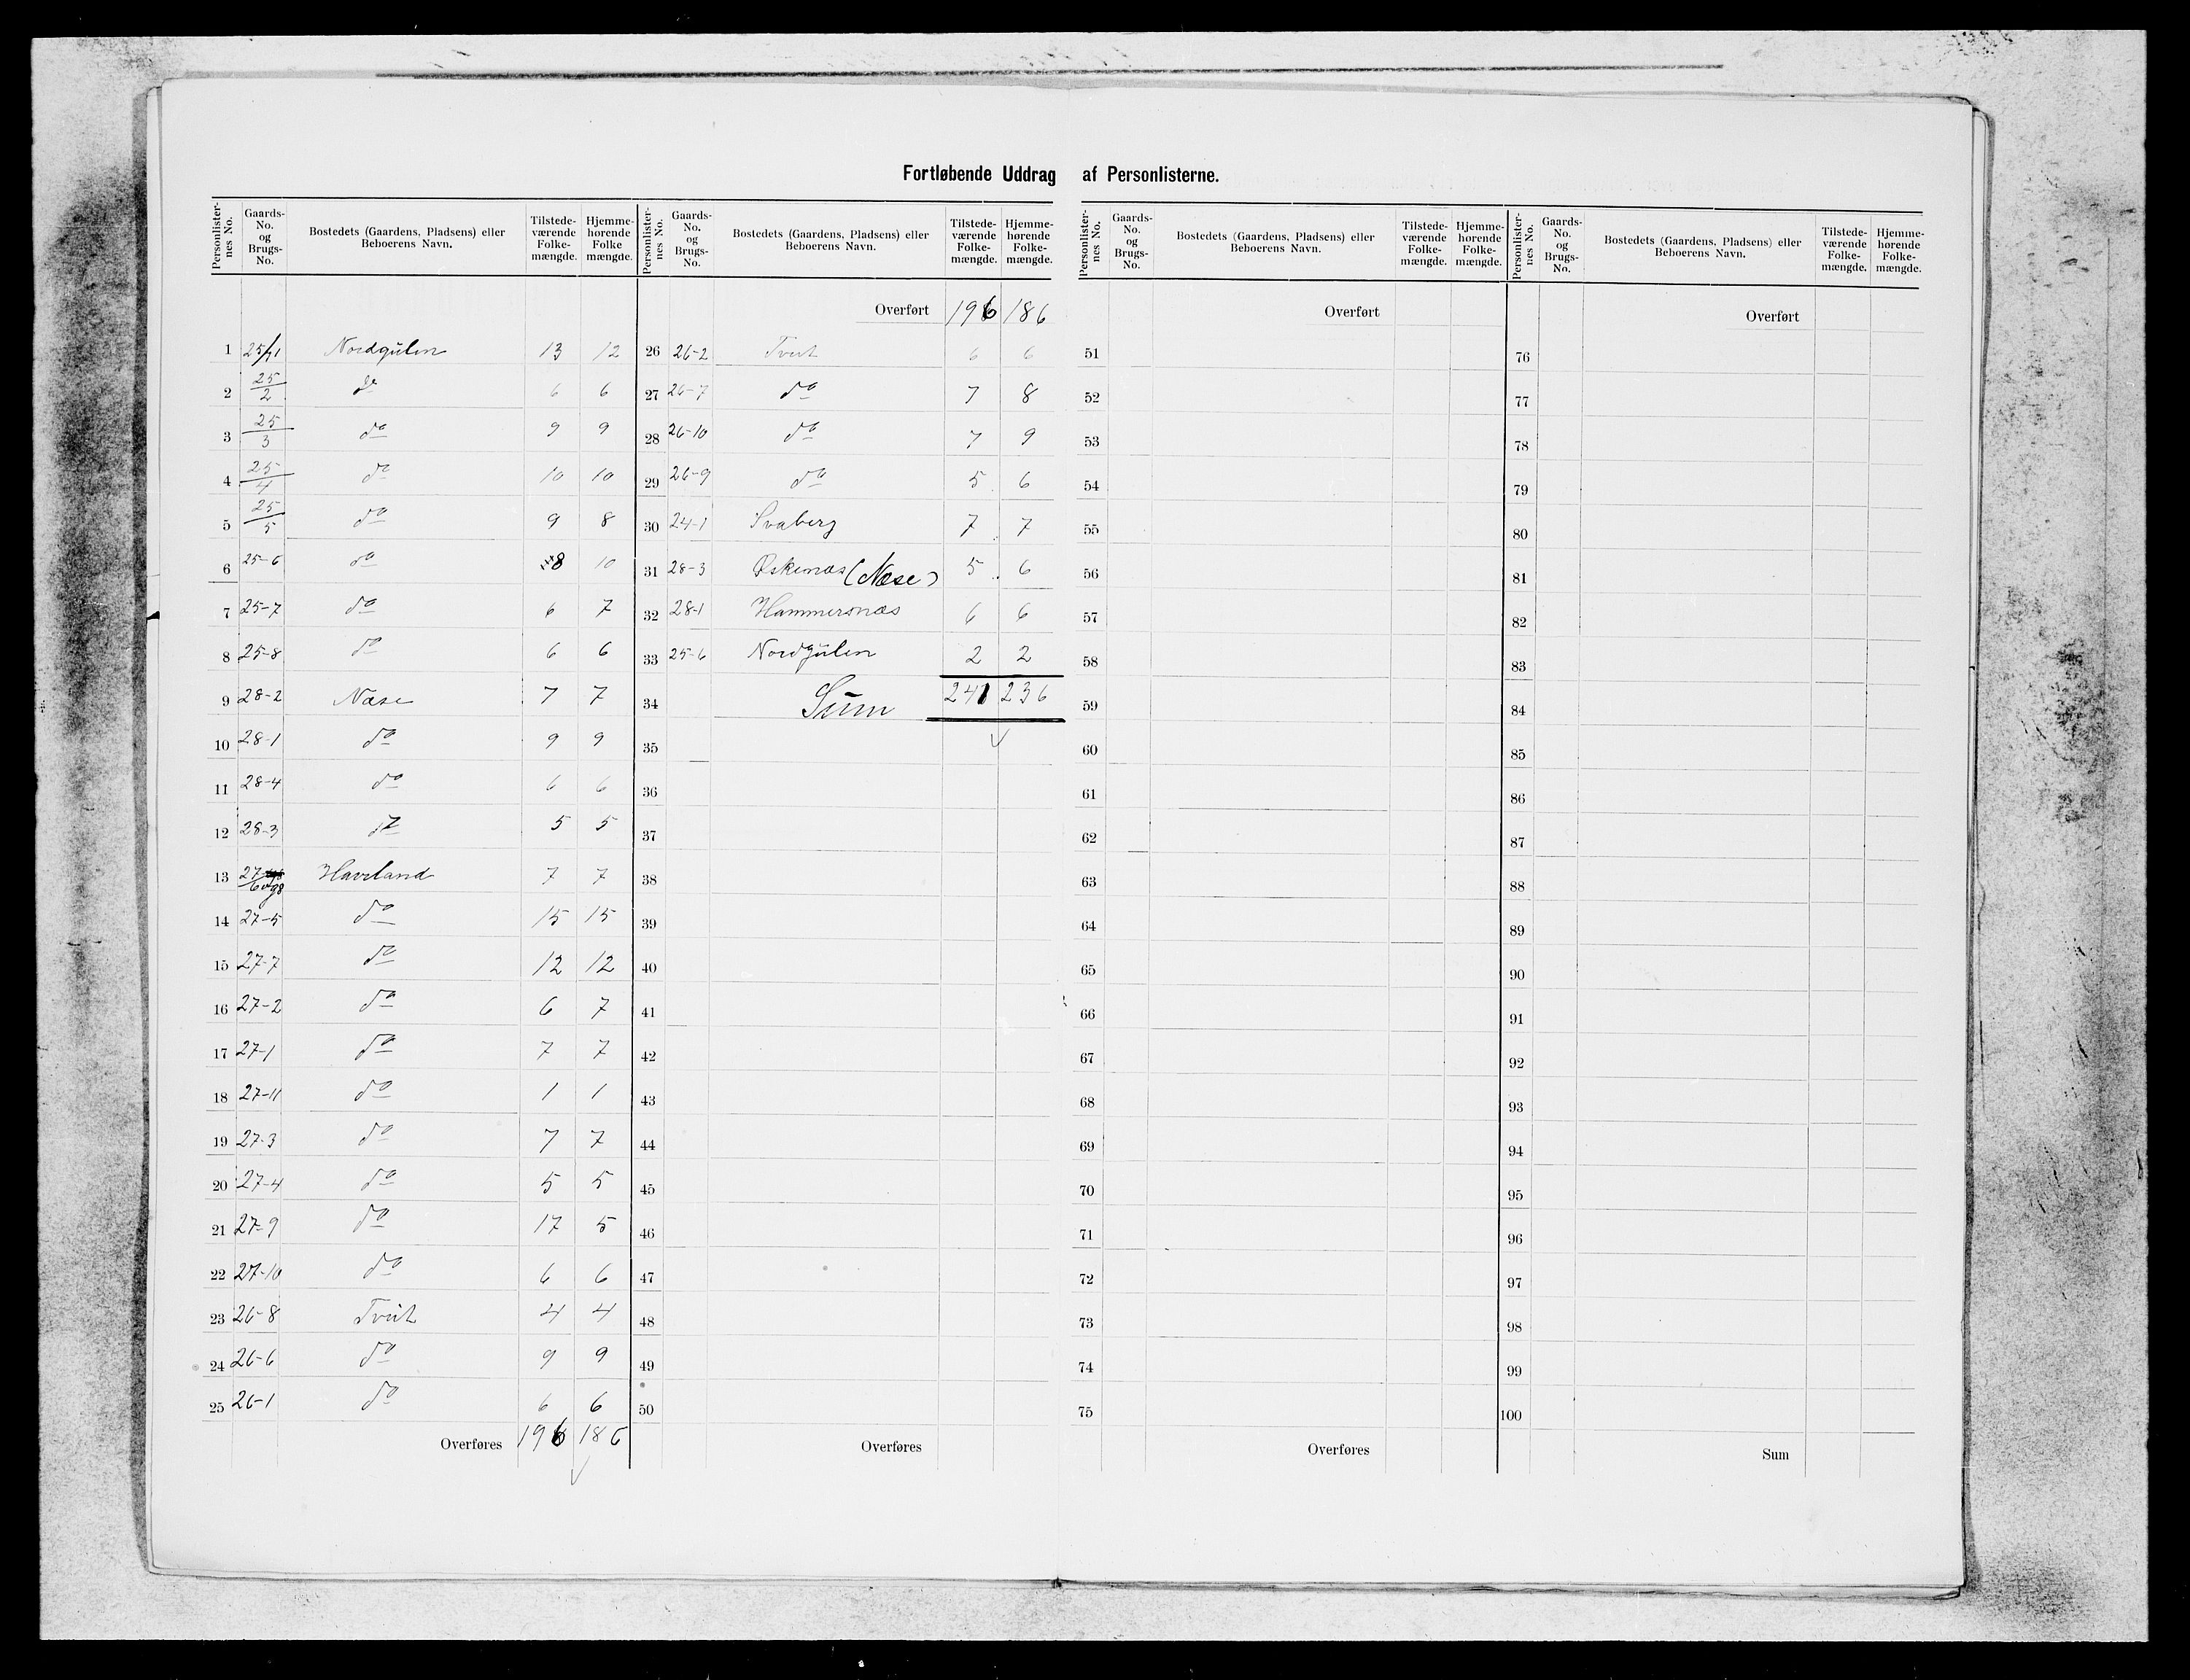 Fortløbende Uddrag af Personlisterne.
Personlister-nes No. | Gaards-No. og Brugs-No. | Bostedets (Gaardens, Pladsens) eller Beboerens Navn. | Tilstede-værende Folke-mængde. | Hjemme-hørende Folke mængde.
1 25/1 Nordgulen 13 12
2 25/2 do 6 6
3 25/3 do 9 9
4 25/4 do 10 10
5 25/5 do 9 8
6 25-6 do 8 10
7 25-7 do 6 7
8 25-8 do 6 6
9 28-2 Næse 7 7
10 28-1 do 9 9
11 28-4 do 6 6
12 28-3 do 5 5
13 27-6og8 Haveland 7 7
14 27-5 do 15 15
15 27-7 do 12 12
16 27-2 do 6 7
17 27-1 do 7 7
18 27-11 do 1 1
19 27-3 do 7 7
20 27-4 do 5 5
21 27-9 do 17 5
22 27-10 do 6 6
23 26-8 Tveit 4 4
24 26-6 do 9 9
25 26-1 do 6 6
Overføres 196 186
Personlister-nes No. | Gaards-No. og Brugs-No. | Bostedets (Gaardens, Pladsens) eller Beboerens Navn. | Tilstede-værende Folke-mængde. | Hjemme-hørende Folke-mængde.
Overført 196 186
26 26-2 Tveit 6 6
27 26-7 do 7 8
28 26-10 do 7 9
29 26-9 do 5 6
30 24-1 Svaberg 7 7
31 28-3 Øskenæs (Næse) 5 6
32 28-1 Hammersnæs 6 6
33 25-6 Nordgulen 2 2
34 Sum 241 236
35
36
37
38
39
40
41
42
43
44
45
46
47
48
49
50
Overføres
Personlister-nes No. | Gaards-No. og Brugs-No. | Bostedets (Gaardens, Pladsens) eller Beboerens Navn. | Tilstede-værende Folke-mængde. | Hjemme-hørende Folke-mængde.
Overført
51
52
53
54
55
56
57
58
59
60
61
62
63
64
65
66
67
68
69
70
71
72
73
74
75
Overføres
Personlister-nes No. | Gaards-No. og Brugs-No. | Bostedets (Gaardens, Pladsens) eller Beboerens Navn. | Tilstede-værende Folke-mængde. | Hjemme-hørende Folke-mængde.
Overført
76
77
78
79
80
81
82
83
84
85
86
87
88
89
90
91
92
93
94
95
96
97
98
99
100
Sum